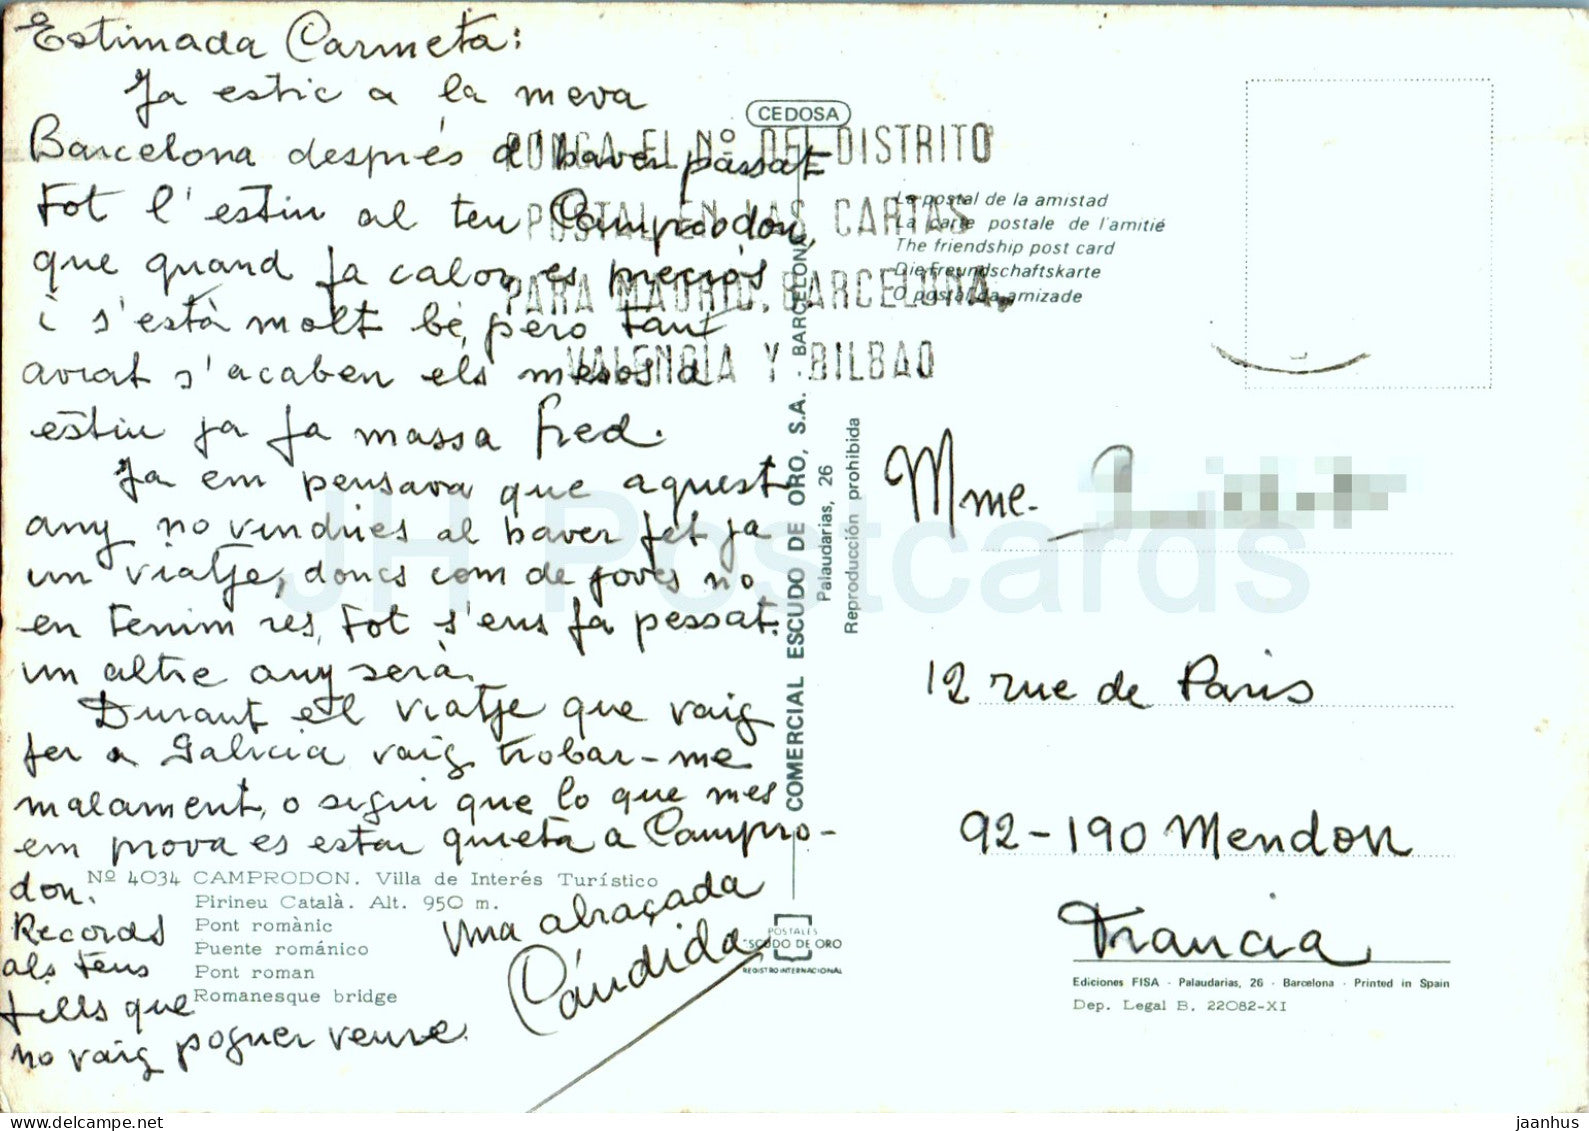 Estimada Carmeta:
Ja estic a la meva
Barcelona després d'haver passat
tot l'estiu al teu Camprodon,
que quand fa calor es preciós
i s'està molt bé, pero tant
aviat s'acaben els mesos d
estiu ja fa massa fred.
Ja em pensava que aquest
any no vindries al haver fet ja
un viatje, doncs com de joves no
en tenim res, tot s'ens fa pessat.
un altre any serà.
Durant el viatje que vaig
fer a Galicia vaig trobar-me
malament, o sigui que lo que mes
em prova es estar quieta a Campro-
don.
Records
als teus
fills que
no vaig poguer veure.
Una abraçada
Cándida
Nº 4034 CAMPRODON. Villa de Interés Turístico
Pirineu Català. Alt. 950 m.
Pont romànic
Puente románico
Pont roman
Romanesque bridge
CEDOSA
PONGA EL Nº DEL DISTRITO
POSTAL EN LAS CARTAS
PARA MADRID, BARCELONA,
VALENCIA Y BILBAO
La postal de la amistad
La carte postale de l'amitié
The friendship post card
Die Freundschaftskarte
O postal da amizade
COMERCIAL ESCUDO DE ORO, S.A. BARCELONA
Palaudarias, 26
Reproducción prohibida
POSTALES
ESCUDO DE ORO
REGISTRO INTERNACIONAL
Mme.
12 rue de Paris
92-190 Mendon
Francia
Ediciones FISA - Palaudarias, 26 - Barcelona - Printed in Spain
Dep. Legal B. 22082-XI
JH Postcards
jaanhus